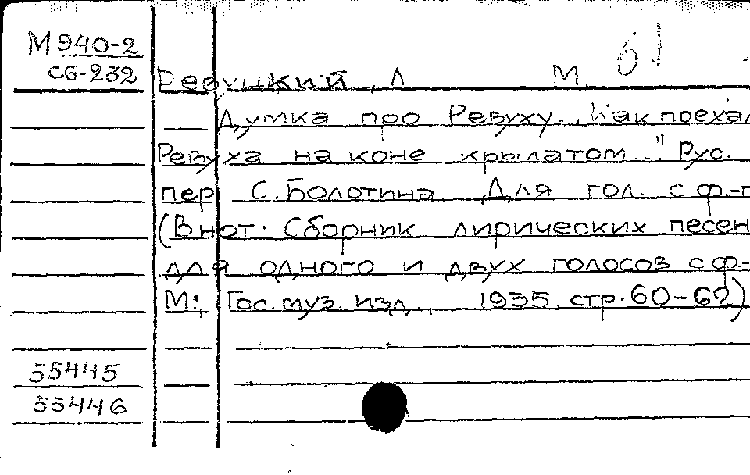 М940-2
СБ-232
Ревуцкий, Л М
Думка про Ревуху. "Как поехал
Ревуха на коне крылатом". Рус.
пер С. Болотина Для гол. с ф-п
(В нот. Сборник лирических песен
для одного и двух голосов с ф-
М., Гос. муз. изд., 1935, стр. 60-62)
55445
55446